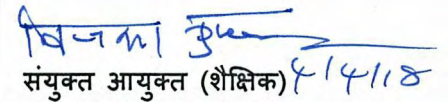 संयुक्त आयुक्त (शैक्षिक) 4/4/18